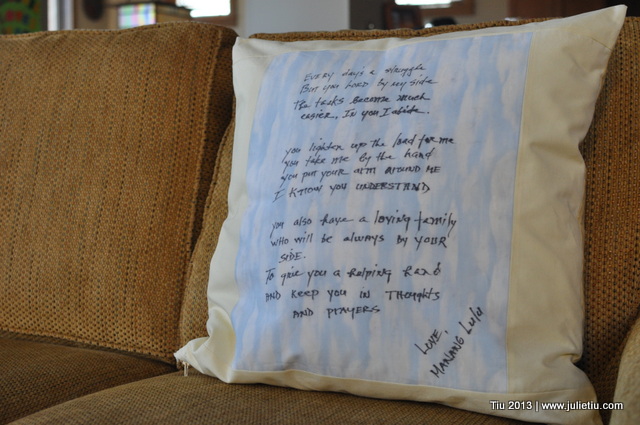 EVERY day's a struggle
But you LORD by my side
The tasks become much
easier, In you I abide.
you lighten up the load for me
you take me by the hand
you put your arm AROUND ME
I KNOW YOU UNDERSTAND
you also have a loving family
WHO will be always by YOUR
SIDE.
To give you a helping hand
AND KEEP YOU IN THOUGHTS
AND PRAYERS
LOVE,
MANANG LULU
Tiu 2013 | www.julietiu.com